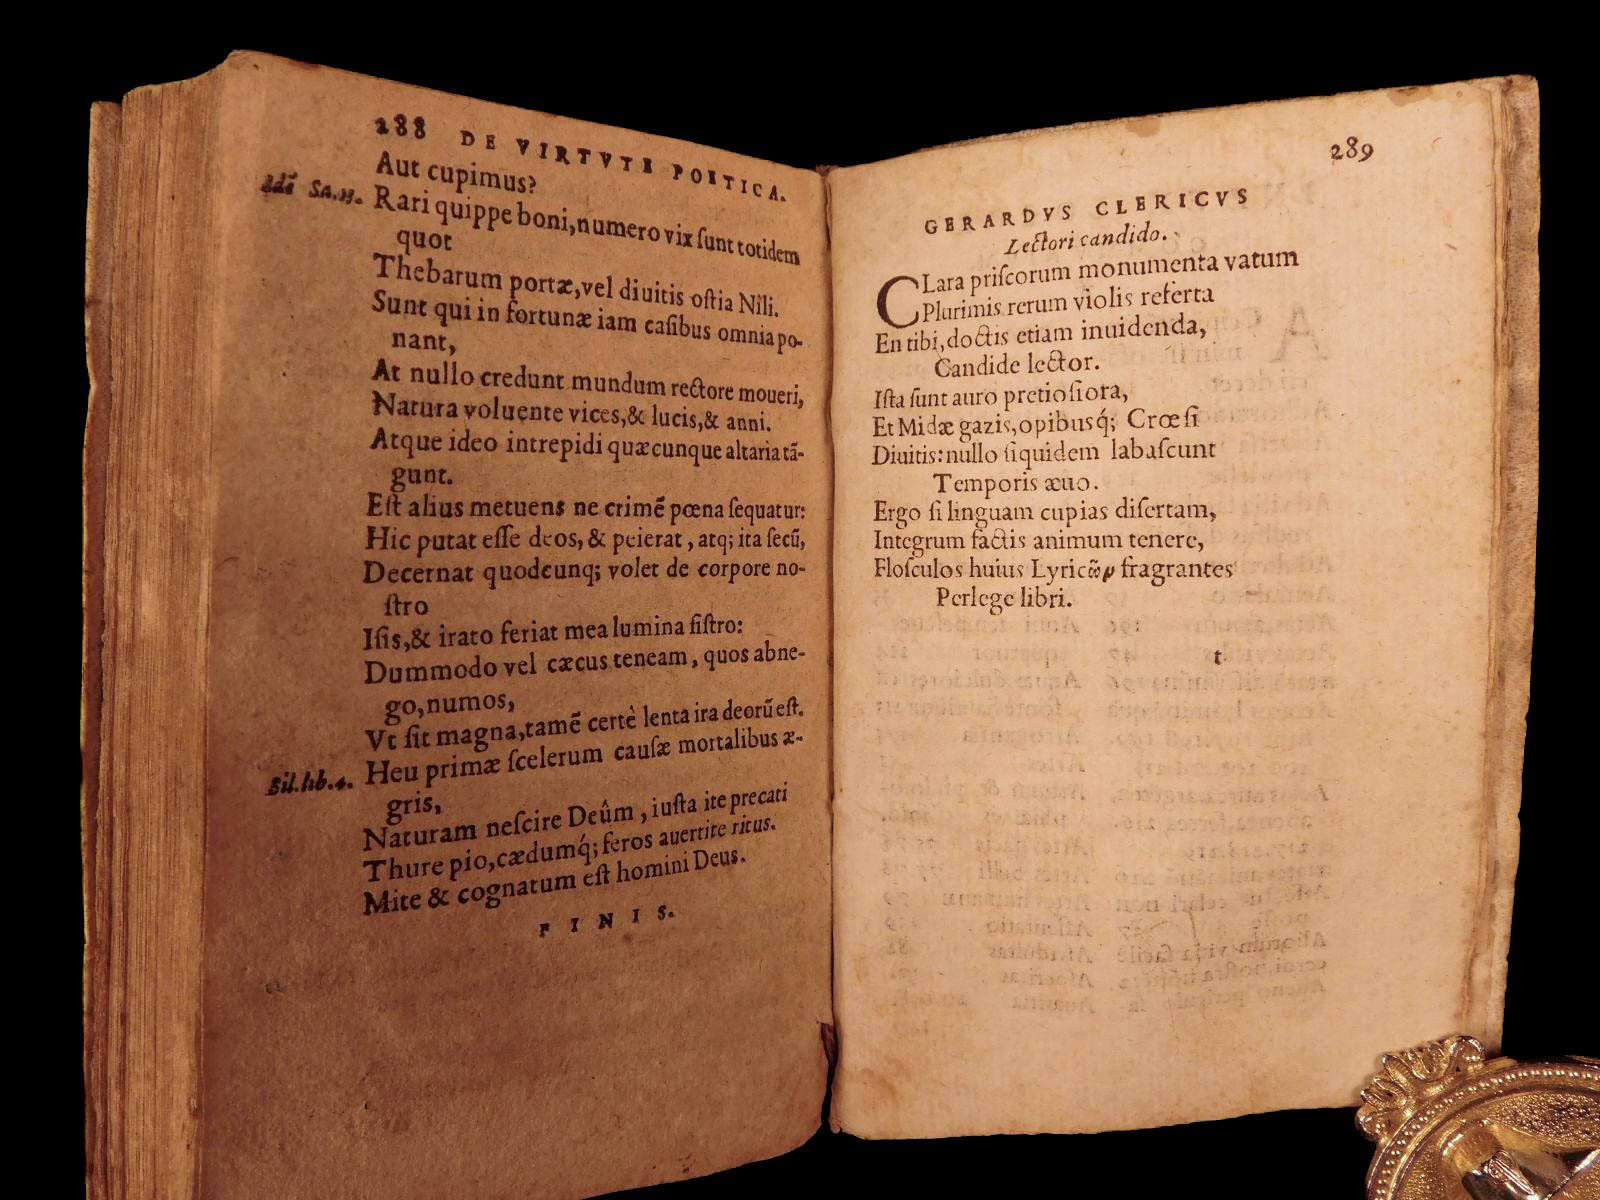 288 DE VIRTVTE POETICA.
Aut cupimus?
Sa.13. Rari quippe boni, numero vix ſunt totidem
quot
Thebarum portæ, vel diuitis oſtia Nili.
Sunt qui in fortunæ iam caſibus omnia po-
nant,
At nullo credunt mundum rectore moueri,
Natura voluente vices, & lucis, & anni.
Atque ideo intrepidi quæcunque altaria tā-
gunt.
Eſt alius metuens ne crimē pœna ſequatur:
Hic putat eſſe deos, & peierat, atq; ita ſecū,
Decernat quodcunq; volet de corpore no-
ſtro
Iſis, & irato feriat mea lumina ſiſtro:
Dummodo vel cæcus teneam, quos abne-
go, numos,
Vt ſit magna, tamē certè lenta ira deorū eſt.
Sil.lib.4. Heu primæ ſcelerum cauſæ mortalibus æ-
gris,
Naturam neſcire Deûm, iuſta ite precati
Thure pio, cædumq́; feros auertite ritus.
Mite & cognatum eſt homini Deus.
FINIS.
289
GERARDVS CLERICVS
Lectori candido.
CLara priſcorum monumenta vatum
Plurimis rerum violis referta
En tibi, doctis etiam inuidenda,
Candide lector.
Iſta ſunt auro pretioſiora,
Et Midæ gazis, opibusq́; Crœſi
Diuitis: nullo ſiquidem labaſcunt
Temporis æuo.
Ergo ſi linguam cupias diſertam,
Integrum factis animum tenere,
Floſculos huius Lyricῶν fragrantes
Perlege libri.
t